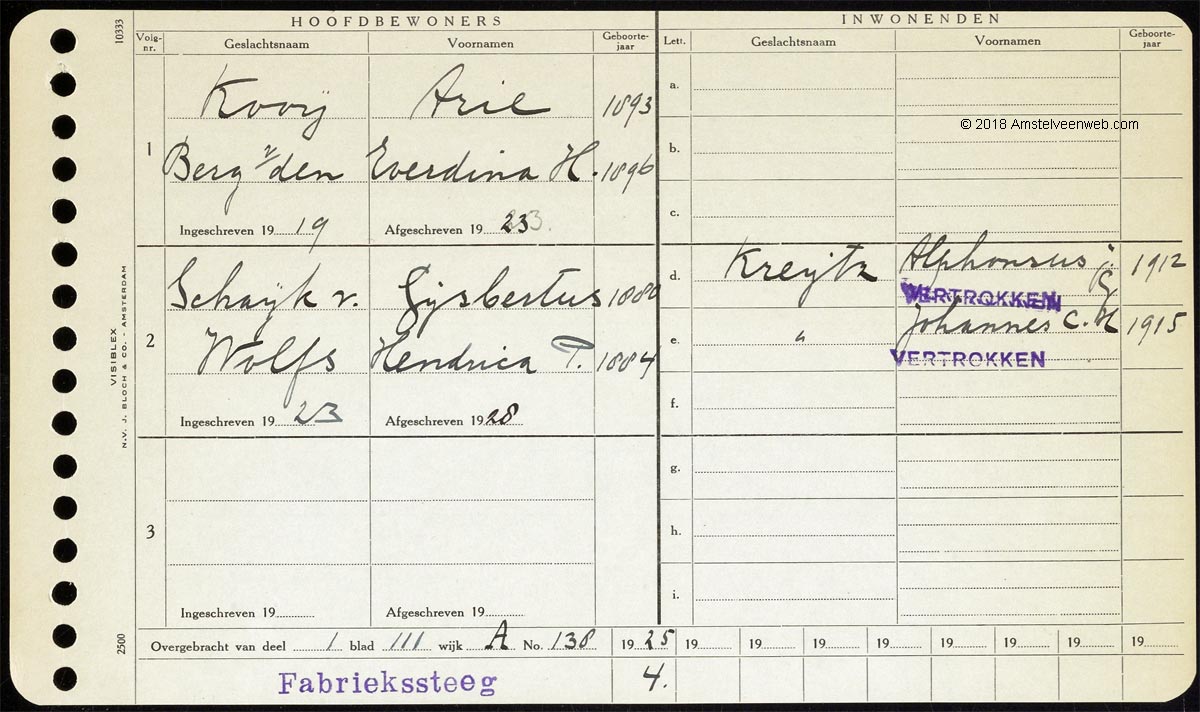 HOOFDBEWONERS INWONENDEN
10333
Volg-nr. Geslachtsnaam Voornamen Geboorte-jaar Lett. Geslachtsnaam Voornamen Geboorte-jaar
Kooij Arie 1893 a.
© 2018 Amstelveenweb.com
1 Berg v/den Everdina H. 1896 b.
Ingeschreven 19 19 Afgeschreven 19 23 c.
Schaijk v. Gijsbertus 1880 d. Kreijtz Alphonsus J. G. 1912
VERTROKKEN
2 Wolfs Hendrica P. 1884 e. " Johannes C. H 1915
VERTROKKEN
Ingeschreven 19 23 Afgeschreven 19 28 f.
VISIBLEX
N.V. J. BLOCH & CO. - AMSTERDAM
g.
3 h.
Ingeschreven 19 Afgeschreven 19 i.
2500
Overgebracht van deel 1 blad 111 wijk A No. 138 19 25 19 19 19 19 19 19 19 19
Fabriekssteeg 4.